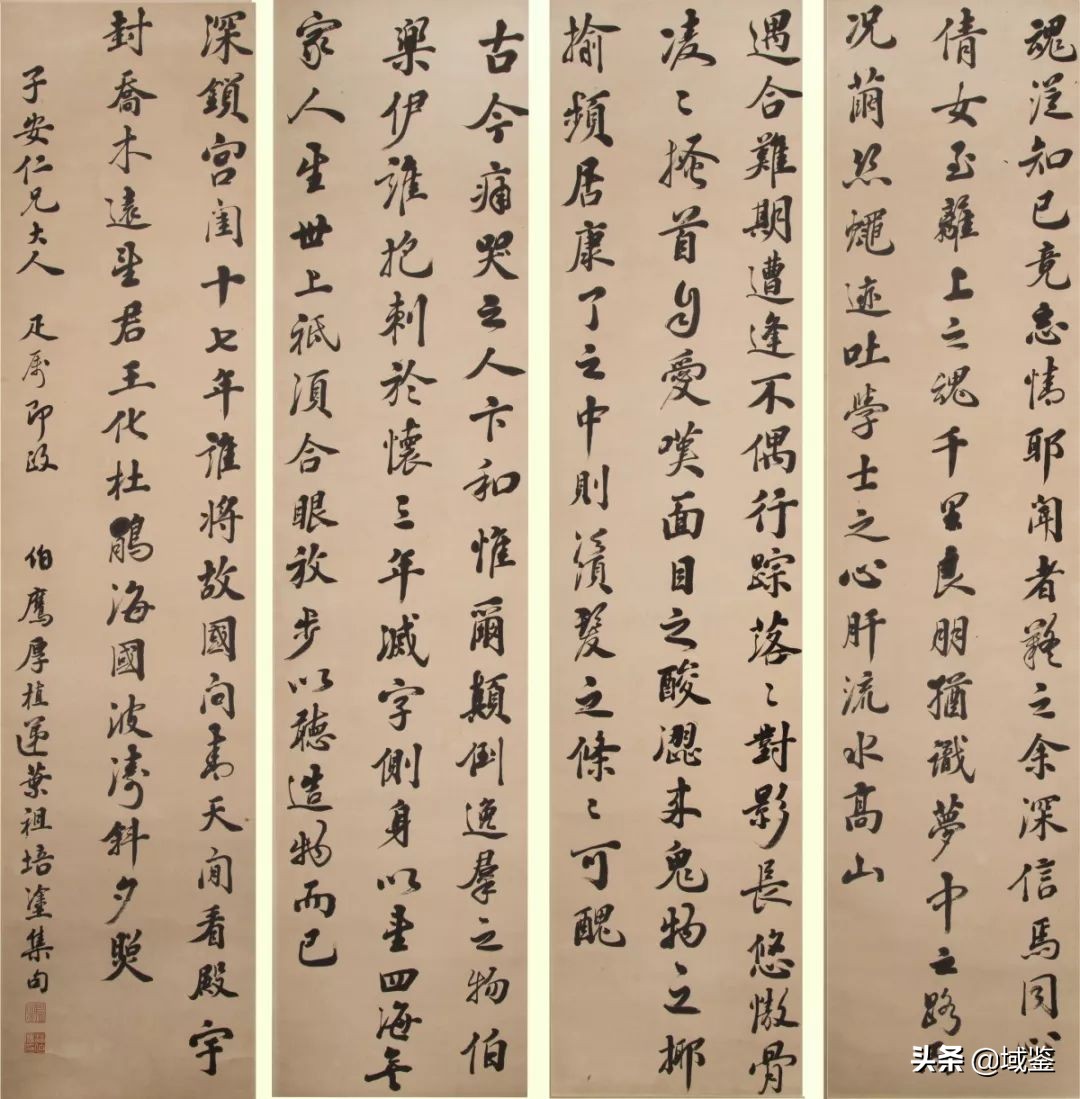 魂從知己竟忘情耶聞者疑之余深信焉同
倩女至離上之魂千里良朋猶識夢中之路
況繭絲蠅迹吐學士之心肝流水高山
遇合難期遭逢不偶行踪落〻對影長悠傲骨
凌〻搔首自愛嘆面目之酸澀来鬼物之揶
揄頻居康了之中則鬚髮之條〻可醜
古今痛哭之人卞和惟爾顛倒逸羣之物伯
樂伊誰抱刺於懷三年滅字側身以望四海無
家人生世上祇須合眼放步以聽造物而已
深鎖宮闈十七年誰將故國问青天閒看殿宇
封喬木遠望君王化杜鵑海國波濤斜夕照
子安仁兄大人 疋屬即政 伯鷹厚植葉祖培塗集句
头条 @域鉴